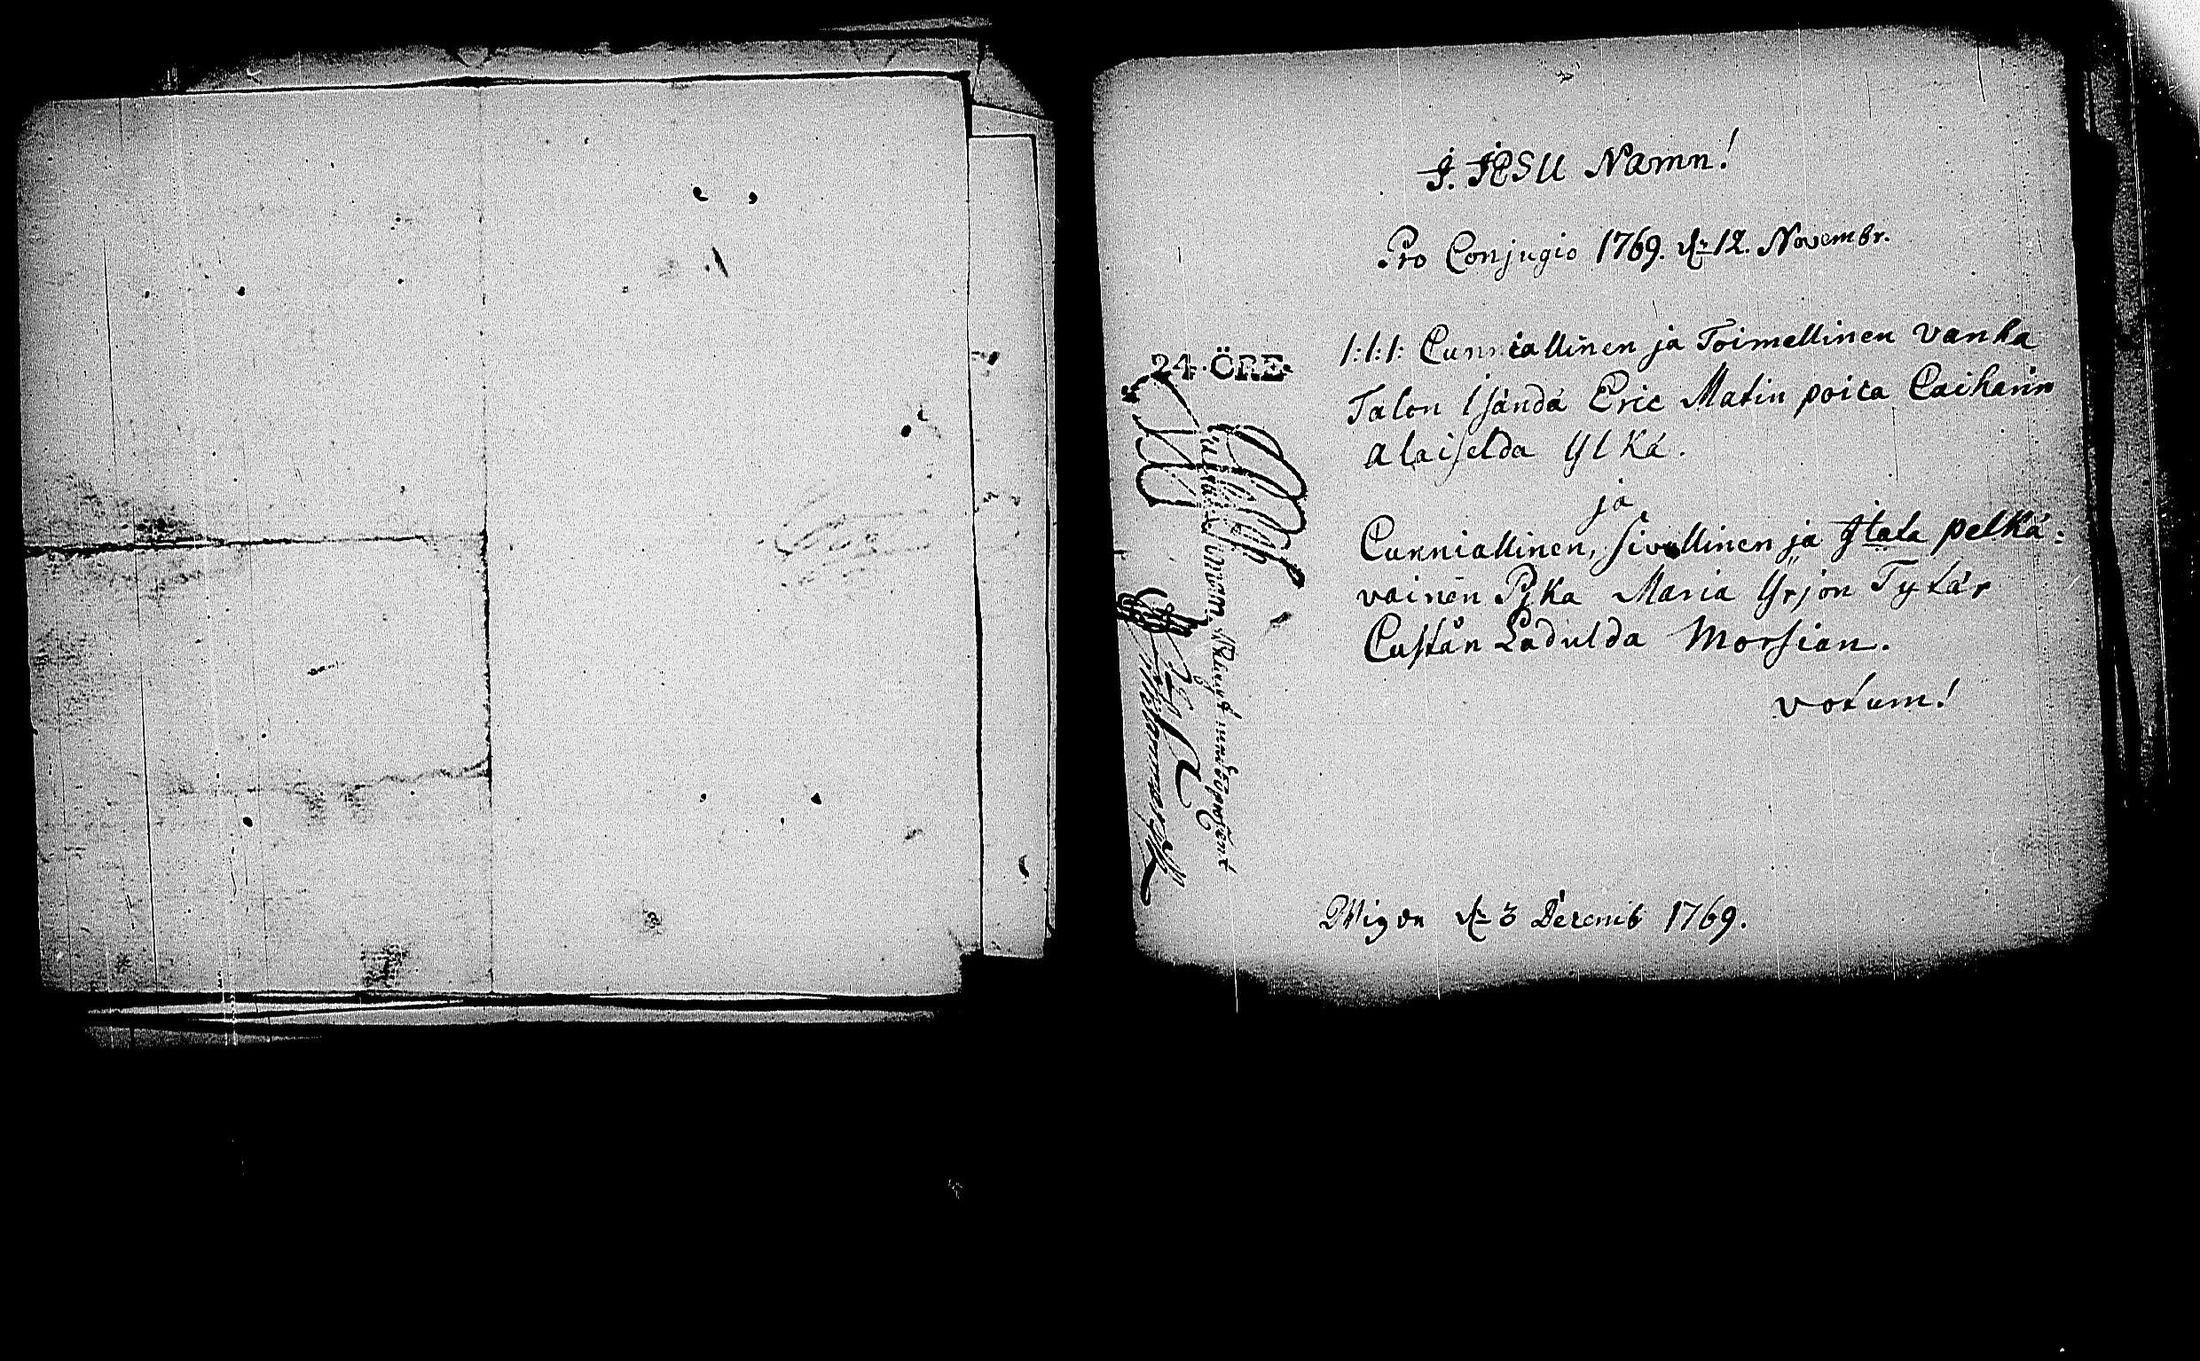 J. JESU Namn!
Pro Conjugio 1769. d. 12. Novembr.
1:1:1: Cunniallinen ja Toimellinen vanha
Talon Isändä Eric Matin poica Caiharin
alaiselda Ylkä.
ja
Cunniallinen, Sivellinen ja Jtala pelkä:
vainen Pjka Maria Yrjön Tytär
Custån Ladulda Morsian.
votum!
24·ÖRE·
Wigda d. 3 Decemb 1769.